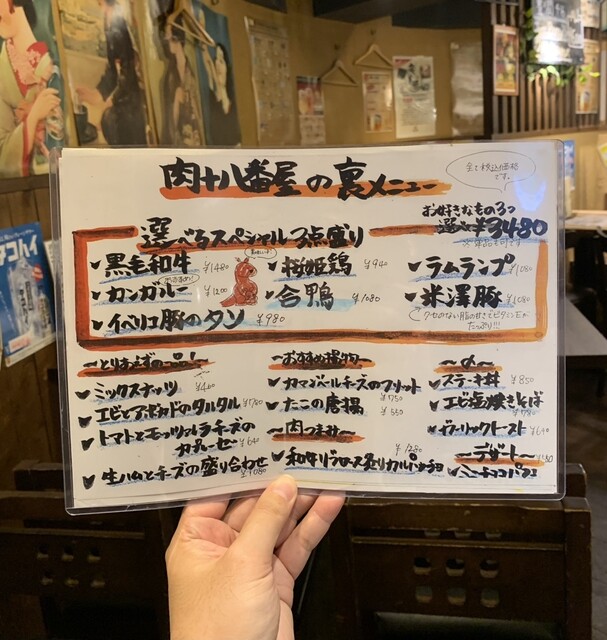 肉十八番屋の裏メニュー
全て税込価格です。
選べるスペシャル3点盛り
お好きなもの3つ
選んで¥3480
※単品も可です
黒毛和牛 ¥1480
桜姫鶏 ¥940
ラムランプ ¥1080
カンガルー ¥1200
合鴨 ¥1080
米澤豚 ¥1080
イベリコ豚のタン ¥980
クセのない脂の甘さでビタミンEが
たっぷり!!!
〜とりあえずの一品!〜
ミックスナッツ ¥460
エビとアボカドのタルタル ¥780
トマトとモッツァレラチーズの
カプレーゼ ¥640
生ハムとチーズの盛り合わせ ¥1080
〜おすすめ揚物〜
カマンベールチーズのフリット ¥750
たこの唐揚 ¥550
〜肉つまみ〜
¥1280
和牛リブロース炙りカルパッチョ
〜〆〜
ステーキ丼 ¥850
エビ塩焼きそば ¥780
ガーリックトースト ¥640
〜デザート〜
ミニチョコパフェ